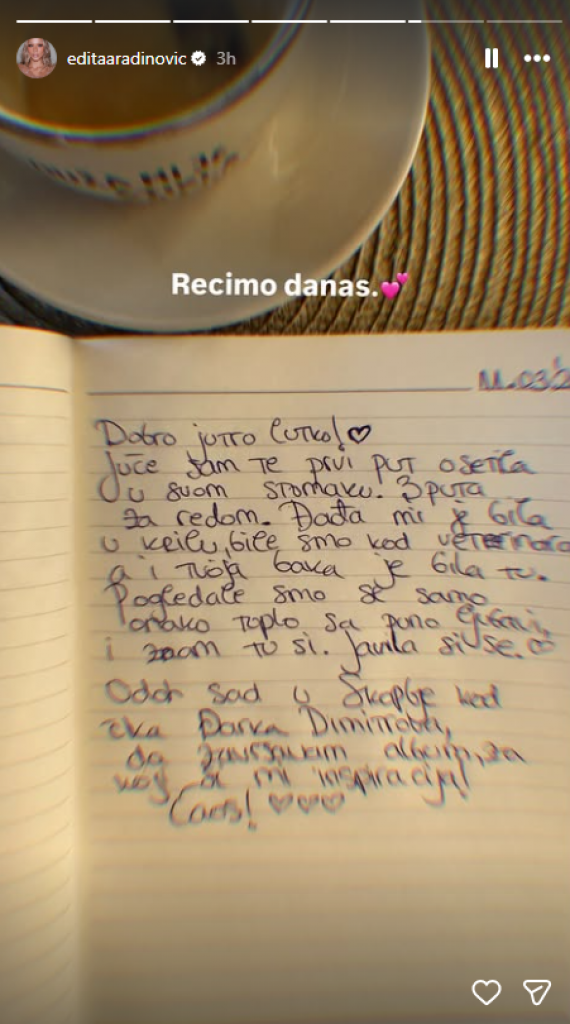 editaaradinovic 3h
Recimo danas.💕
11.03.2
Dobro jutro lutko!♡
Juče sam te prvi put osetila
u svom stomaku. 3 puta
za redom. Dađa mi je bila
u krilu, bile smo kod veterinara
a i tvoja baka je bila tu.
Pogledale smo se samo
onako toplo sa puno ljubavi,
i znam tu si. Javila si se.♡
Odoh sad u Skoplje kod
čika Darka Dimitrova,
da završavam album, za
koj si mi inspiracija!
Ćaos! ♡♡♡